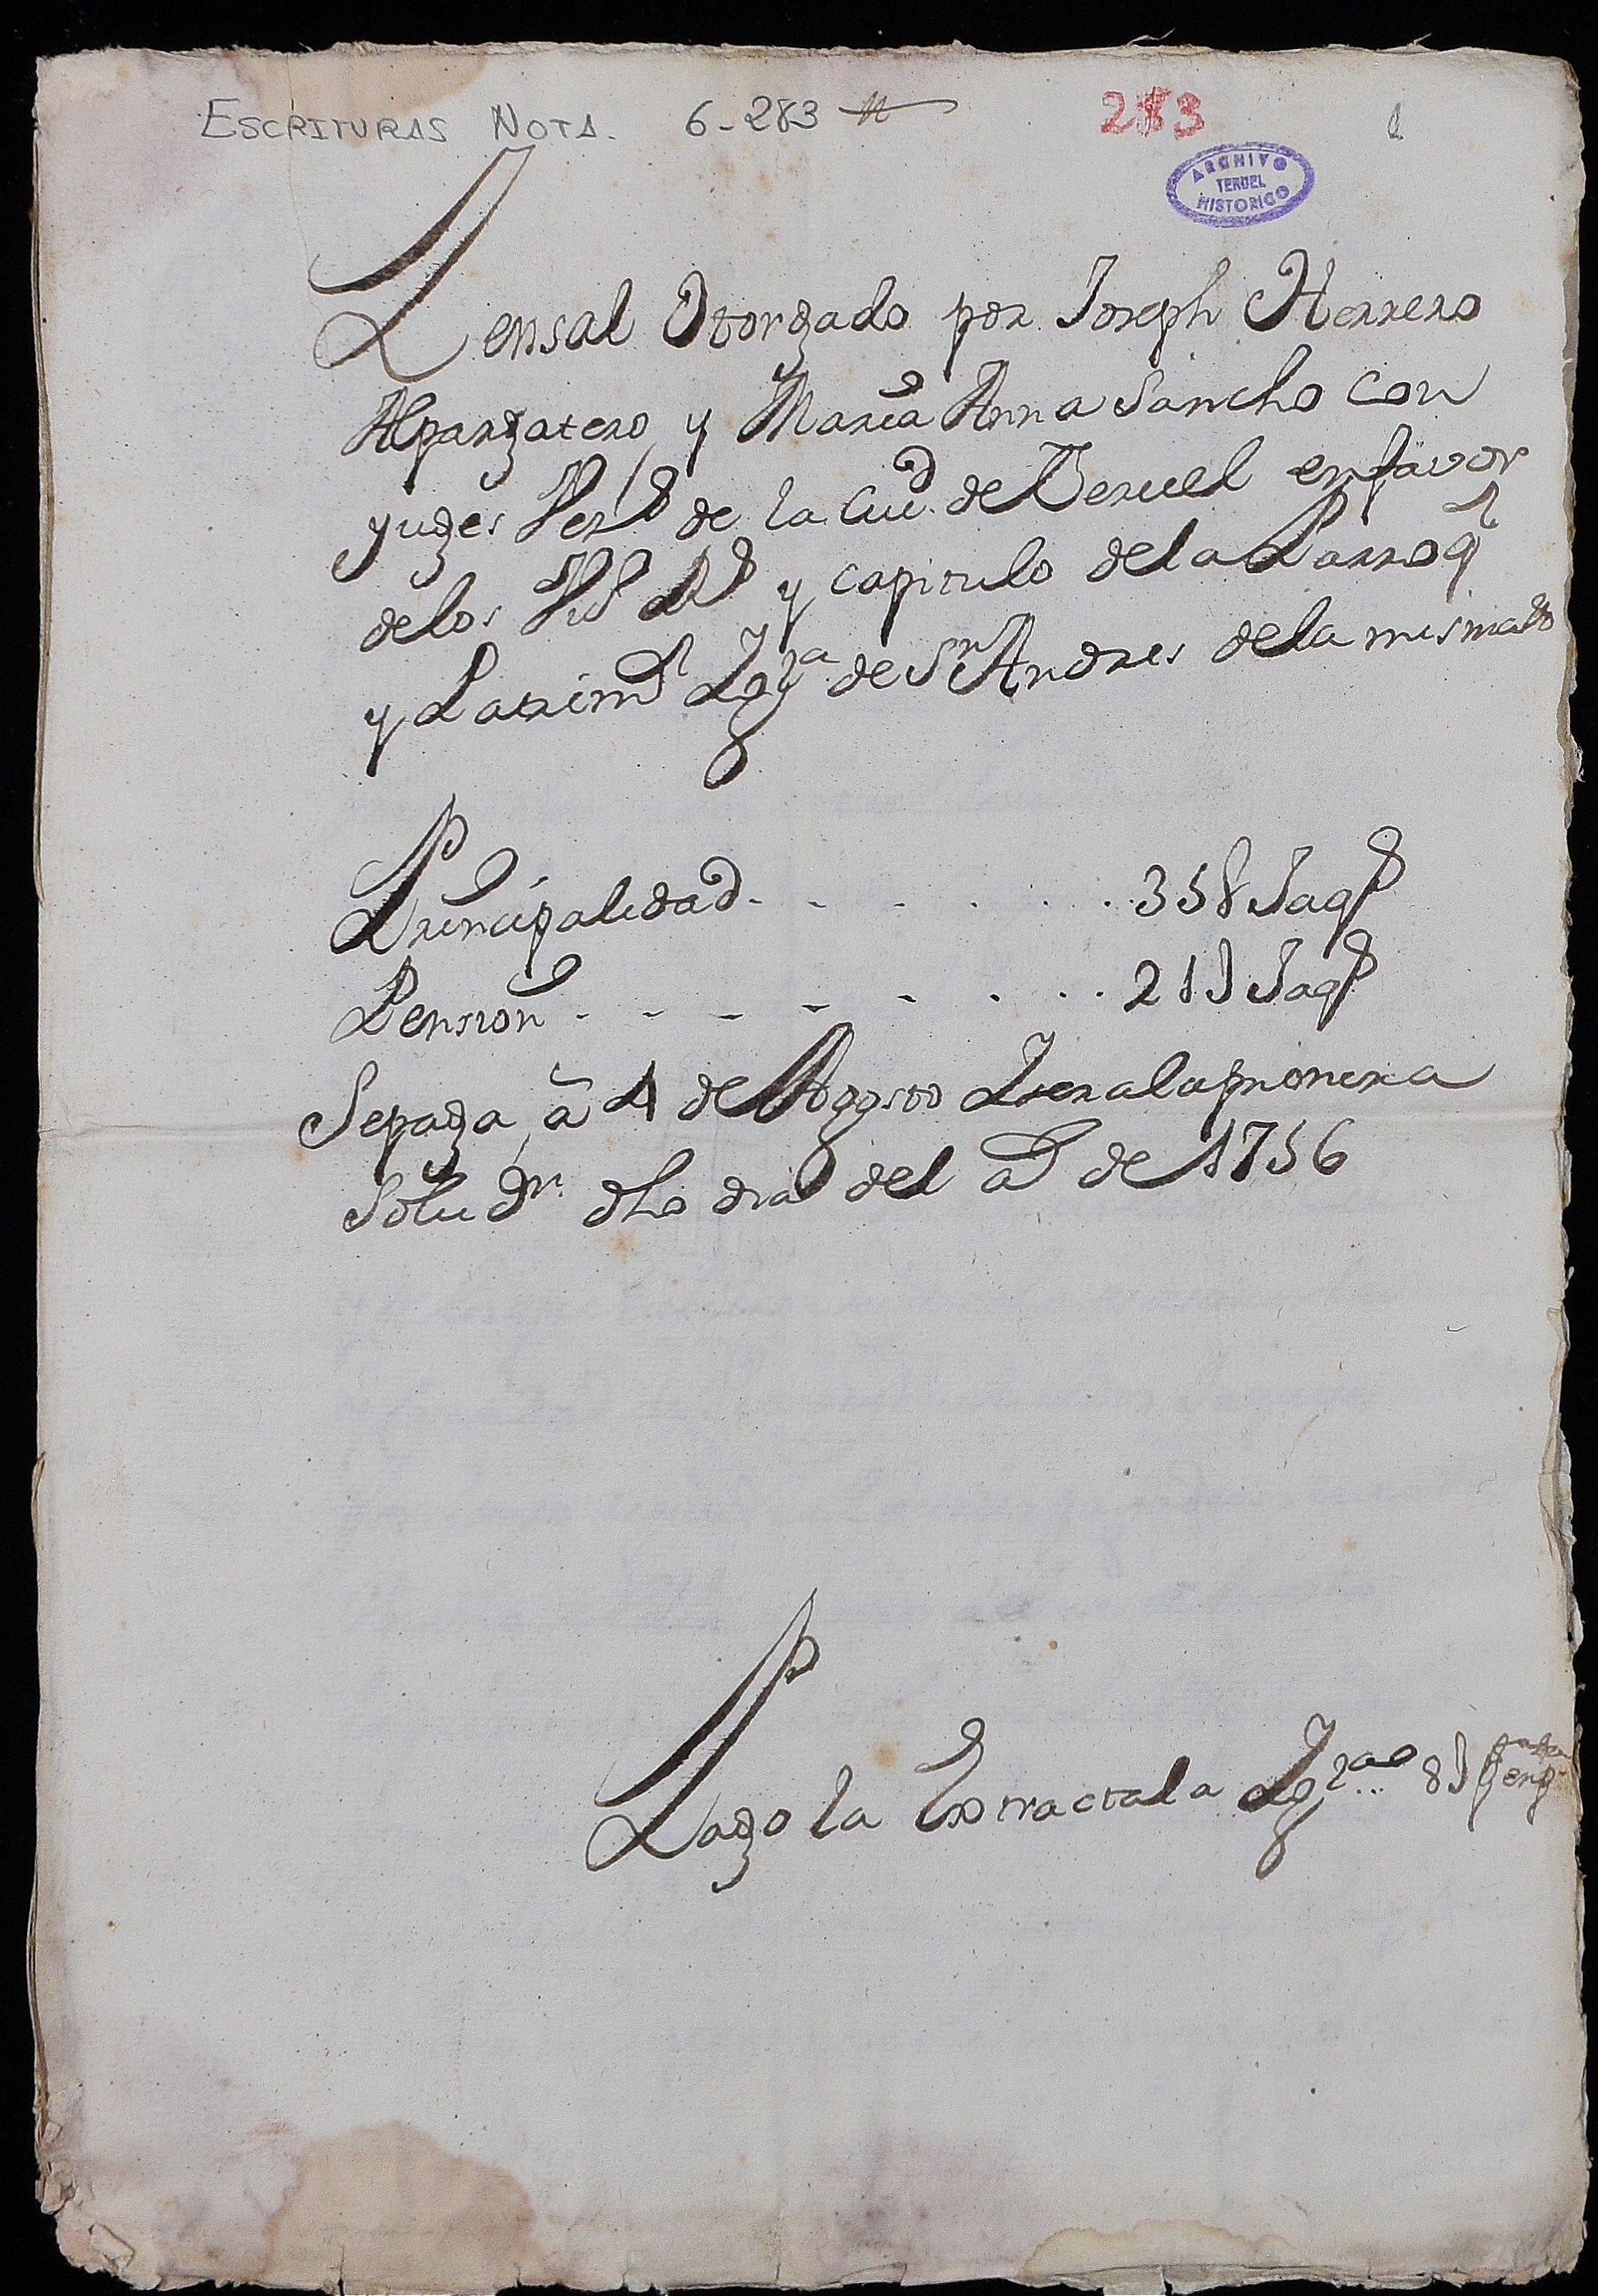 ESCRITURAS NOTA. 6-283
283
1
ARCHIVO
TERUEL
HISTORICO
Censal Otorgado por Joseph Herrero
Alpargatero, y Maria Anna Sancho Con
yuges Vez.s de la Ciu.d de Teruel en favor
delos y capitulo dela Parroq.l
y Patrim.l Igl.a de S.n Andres dela misma
Principalidad . . . . . . . 35 Jaq.s
Pension . . . . . . . 21 Jaq.s
Sepaga â 4 de Agosto Sera la primera
Soluc.n dho dia del a.o de 1756
Pago la Extracta la Igl.a